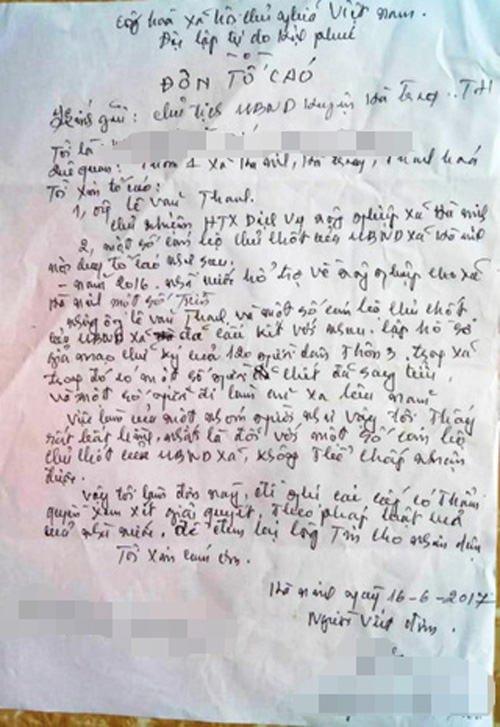 Cộng hoà xã hội chủ nghĩa Việt Nam.
Độc lập tự do hạnh phúc
ĐƠN TỐ CÁO
Kính gửi: Chủ tịch UBND huyện Hà Trung .. TH
Tôi là
Quê quán: Thôn 4 xã Hà Ninh, Hà Trung, Thanh Hoá
Tôi xin tố cáo:
1, ông Lê Văn Thanh.
chủ nhiệm HTX Dịch vụ nông nghiệp xã Hà Ninh
2, một số cán bộ chủ chốt của UBND xã Hà Ninh
nội dung tố cáo như sau.
- năm 2016. nhà nước hỗ trợ về nông nghiệp cho xã
Hà Ninh một số tiền
nhưng ông Lê Văn Thanh và một số cán bộ chủ chốt
của UBND xã đã cấu kết với nhau. lập hồ sơ
giả mạo chữ ký của 120 người dân Thôn 3. trong xã
trong đó có một số người chết đã
và một số người đi làm ăn xa lâu năm
Việc làm của một nhóm người như vậy tôi thấy
rất bất bình, nhất là đối với một số cán bộ
chủ chốt của UBND xã, không thể chấp nhận
được.
Vậy tôi làm đơn này, đề nghị các cấp có thẩm
quyền xem xét giải quyết. theo pháp luật
của nhà nước. để đem lại lòng tin cho nhân dân
Tôi xin cảm ơn.
Hà Ninh ngày 16-6-2017
Người viết đơn.